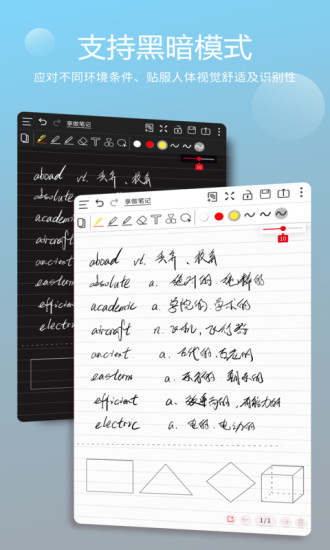 支持黑暗模式
应对不同环境条件、贴服人体视觉舒适及识别性
享做笔记
10
aboad vt.
absolute
academic
aircraft
ancient
eastern
efficient
electric
享做笔记
10
aboad vt. 丢弃、放弃
absolute a. 绝对的、纯粹的
academic a. 学院的、学术的
aircraft n. 飞机、飞行器
ancient a. 古代的、古老的
eastern a. 东方的、朝东的
efficient a. 效率高的、有能力的
electric a. 电的、电动的
1/1